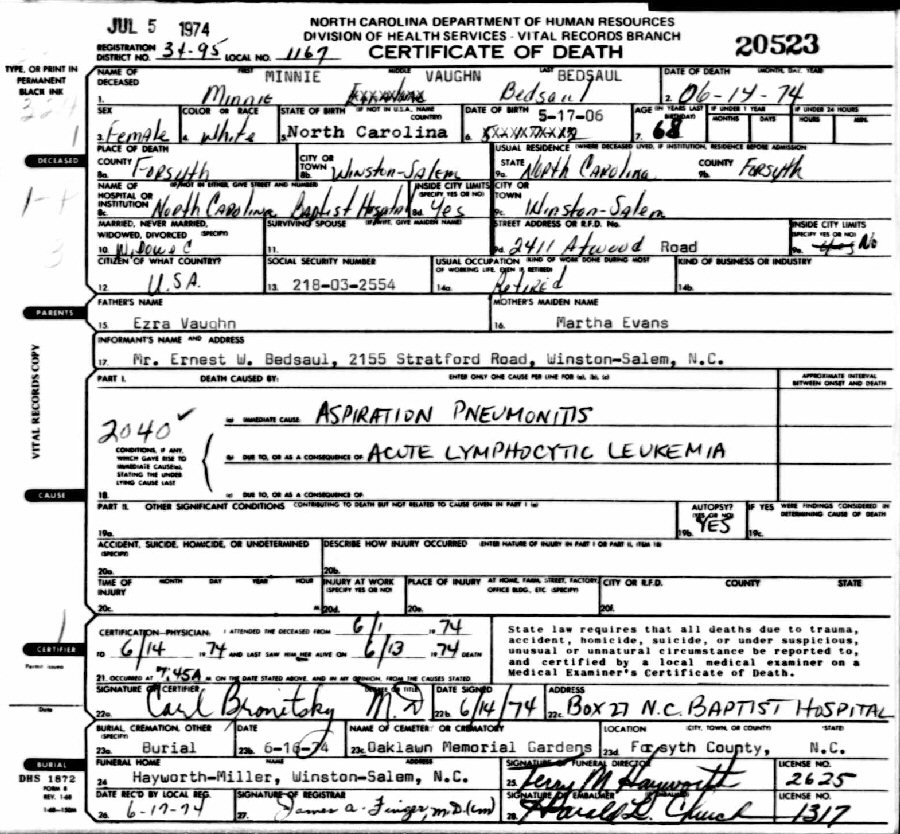 JUL 5 1974
NORTH CAROLINA DEPARTMENT OF HUMAN RESOURCES
DIVISION OF HEALTH SERVICES - VITAL RECORDS BRANCH
CERTIFICATE OF DEATH
20523
REGISTRATION DISTRICT NO. 34-95 LOCAL NO. 1167
TYPE, OR PRINT IN PERMANENT BLACK INK
NAME OF DECEASED FIRST MIDDLE LAST
MINNIE VAUGHN BEDSAUL
1. Minnie Bedsaul
DATE OF DEATH (MONTH, DAY, YEAR)
2. 06-14-74
SEX
3. Female
COLOR OR RACE
4. White
STATE OF BIRTH (IF NOT IN U.S.A. NAME COUNTRY)
5. North Carolina
DATE OF BIRTH
5-17-06
6.
AGE (IN YEARS LAST BIRTHDAY)
7. 68
IF UNDER 1 YEAR
MONTHS DAYS
IF UNDER 24 HOURS
HOURS MIN.
DECEASED
PLACE OF DEATH
COUNTY
8a. Forsyth
CITY OR TOWN
8b. Winston-Salem
USUAL RESIDENCE (WHERE DECEASED LIVED, IF INSTITUTION, RESIDENCE BEFORE ADMISSION
STATE
9a. North Carolina
COUNTY
9b. Forsyth
NAME OF HOSPITAL OR INSTITUTION (IF NOT IN EITHER, GIVE STREET AND NUMBER)
8c. North Carolina Baptist Hospital
INSIDE CITY LIMITS (SPECIFY YES OR NO)
8d. Yes
CITY OR TOWN
9c. Winston-Salem
MARRIED, NEVER MARRIED, WIDOWED, DIVORCED (SPECIFY)
10. Widowed
SURVIVING SPOUSE (IF WIFE, GIVE MAIDEN NAME)
11.
STREET ADDRESS OR R.F.D. No.
9d. 2411 Atwood Road
INSIDE CITY LIMITS (SPECIFY YES OR NO)
9e. No
CITIZEN OF WHAT COUNTRY?
12. U.S.A.
SOCIAL SECURITY NUMBER
13. 218-03-2554
USUAL OCCUPATION (KIND OF WORK DONE DURING MOST OF WORKING LIFE, EVEN IF RETIRED)
14a. Retired
KIND OF BUSINESS OR INDUSTRY
14b.
PARENTS
FATHER'S NAME
15. Ezra Vaughn
MOTHER'S MAIDEN NAME
16. Martha Evans
INFORMANT'S NAME AND ADDRESS
17. Mr. Ernest W. Bedsaul, 2155 Stratford Road, Winston-Salem, N.C.
VITAL RECORDS COPY
PART I. DEATH CAUSED BY: ENTER ONLY ONE CAUSE PER LINE FOR (a), (b), (c)
APPROXIMATE INTERVAL BETWEEN ONSET AND DEATH
(a) IMMEDIATE CAUSE ASPIRATION PNEUMONITIS
2040 ✓
CONDITIONS, IF ANY, WHICH GAVE RISE TO IMMEDIATE CAUSE(a), STATING THE UNDERLYING CAUSE LAST
(b) DUE TO, OR AS A CONSEQUENCE OF: ACUTE LYMPHOCYTIC LEUKEMIA
CAUSE
18. (c) DUE TO, OR AS A CONSEQUENCE OF:
PART II. OTHER SIGNIFICANT CONDITIONS CONTRIBUTING TO DEATH BUT NOT RELATED TO CAUSE GIVEN IN PART I (a)
19a.
AUTOPSY? (YES OR NO)
19b. YES
IF YES WERE FINDINGS CONSIDERED IN DETERMINING CAUSE OF DEATH
19c.
ACCIDENT, SUICIDE, HOMICIDE, OR UNDETERMINED (SPECIFY)
20a.
DESCRIBE HOW INJURY OCCURRED (ENTER NATURE OF INJURY IN PART I OR PART II, ITEM 18)
20b.
TIME OF INJURY MONTH DAY YEAR HOUR
20c. M.
INJURY AT WORK (SPECIFY YES OR NO)
20d.
PLACE OF INJURY AT HOME, FARM, STREET, FACTORY, OFFICE BLDG., ETC. (SPECIFY)
20e.
CITY OR R.F.D. COUNTY STATE
20f.
CERTIFIER
CERTIFICATION—PHYSICIAN: I ATTENDED THE DECEASED FROM 6/1 19 74
TO 6/14 19 74 AND LAST SAW HIM/HER ALIVE ON 6/13 19 74 DEATH
21. OCCURRED AT 7:45A M. ON THE DATE STATED ABOVE, AND IN MY OPINION, FROM THE CAUSES STATED
State law requires that all deaths due to trauma,
accident, homicide, suicide, or under suspicious,
unusual or unnatural circumstance be reported to,
and certified by a local medical examiner on a
Medical Examiner's Certificate of Death.
Permit issued
Date
SIGNATURE OF CERTIFIER DEGREE OR TITLE
22a. Carl Bronitsky M.D
DATE SIGNED
22b. 6/14/74
ADDRESS
22c. BOX 27 N.C. BAPTIST HOSPITAL
BURIAL, CREMATION, OTHER (SPECIFY)
23a. Burial
DATE
23b. 6-16-74
NAME OF CEMETERY OR CREMATORY
23c. Oaklawn Memorial Gardens
LOCATION (CITY, TOWN, OR COUNTY) (STATE)
23d. Forsyth County, N.C.
BURIAL
FUNERAL HOME NAME ADDRESS
24. Hayworth-Miller, Winston-Salem, N.C.
SIGNATURE OF FUNERAL DIRECTOR
25. Terry M Hayworth
LICENSE NO.
2625
DHS 1872
FORM 8
REV. 1-68
DATE REC'D BY LOCAL REG.
26. 6-17-74
SIGNATURE OF REGISTRAR
27. James A. Finger, M.D.
SIGNATURE OF EMBALMER
28. Harold L. Church
LICENSE NO.
1317